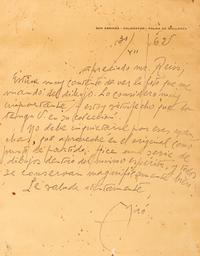 SON ABRINES - CALAMAYOR - PALMA DE MALLORCA
31/VII/62
Apreciado Mr.
Estuve muy contento de ver la foto que me
mandó del dibujo. Lo considero muy
importante y estoy satisfecho que lo
tenga Vd en su colección.
No debe inquietarse por esas
que aparecen en el original como
punto de partida. Hice una serie de
dibujos dentro del mismo espíritu, y todos
se conservan magníficamente bien.
Le saluda atentamente,
Miró